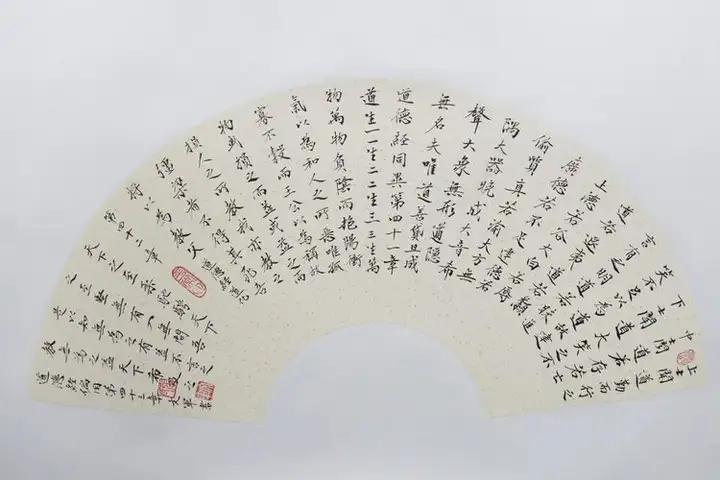 上士聞道勤而行之
中士聞道若存若亡
下士聞道大笑之不
笑不足以為道故
言有之明道若
道若退夷道若
上德若谷大白若
廣德若不足建德若
偷質真若渝大方無
隅大器晚成大音希
聲大象無形道隱
無名夫唯道善貸且成
道德經同異第四十一章
道生一一生二二生三三生萬
物萬物負陰而抱陽衝
氣以為和人之所惡唯孤
寡不穀而王公以為稱故
物或損之而益或益之而
損人之所教我亦教之
強梁者不得其死吾
將以為教父
道德經道化
第四十二章
天下之至柔馳騁天下
之至堅無有入無間吾
是以知無為之有益不言之
教無為之益天下希及之
道德經偏用第四十三章
大軍書